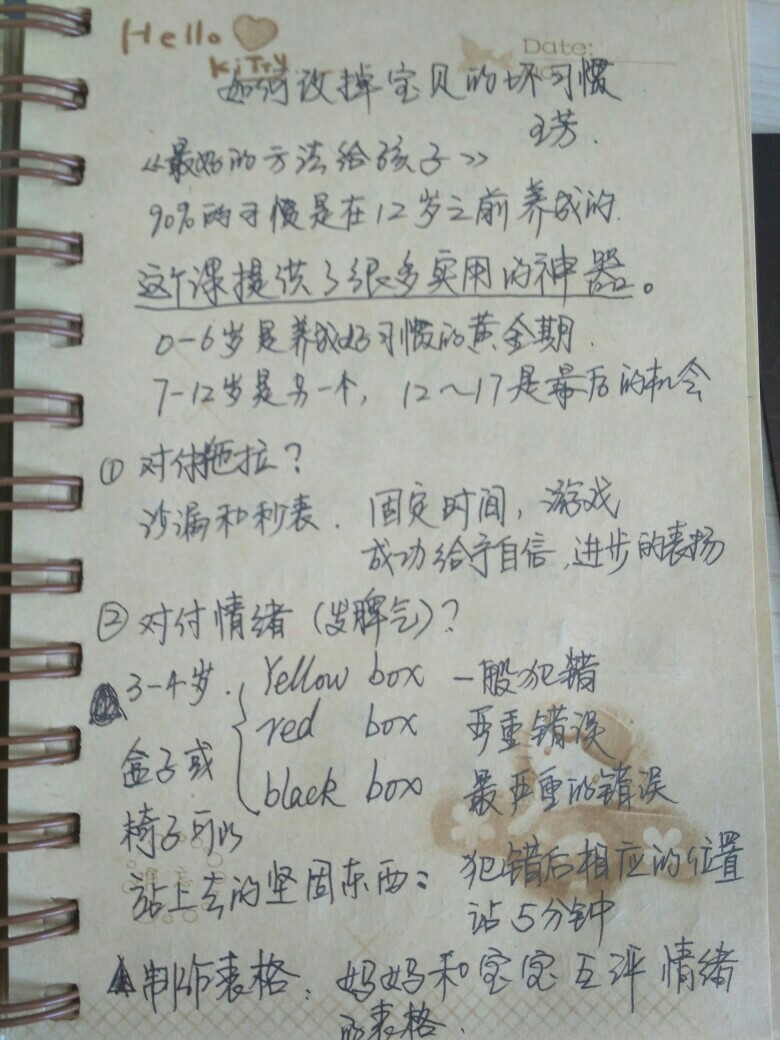 Hello
KiTTy
Date:
如何改掉宝贝的坏习惯
王芳.
《最好的方法给孩子》
90%的习惯是在12岁之前养成的.
这个课提供了很多实用的神器。
0-6岁是养成好习惯的黄金期.
7-12岁是另一个, 12~17是最后的机会
① 对付拖拉?
沙漏和秒表. 固定时间, 游戏
成功给予自信, 进步的表扬
② 对付情绪 (发脾气)?
3-4岁. Yellow box 一般犯错
red box 严重错误
盒子或
black box 最严重的错误
椅子可以
站上去的坚固东西: 犯错后相应的位置
站5分钟
制作表格: 妈妈和宝宝互评情绪
的表格.